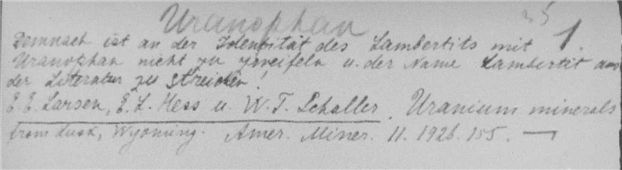 Uranophan
Demnach ist an der Identität des Lambertits mit 1.
Uranophan nicht zu zweifeln u. der Name Lambertit aus
der Literatur zu streichen!
E. E. Larsen, E. L. Hess u. W. T. Schaller. Uranium minerals
from Lusk, Wyoming. Amer. Miner. 11. 1926. 155. —